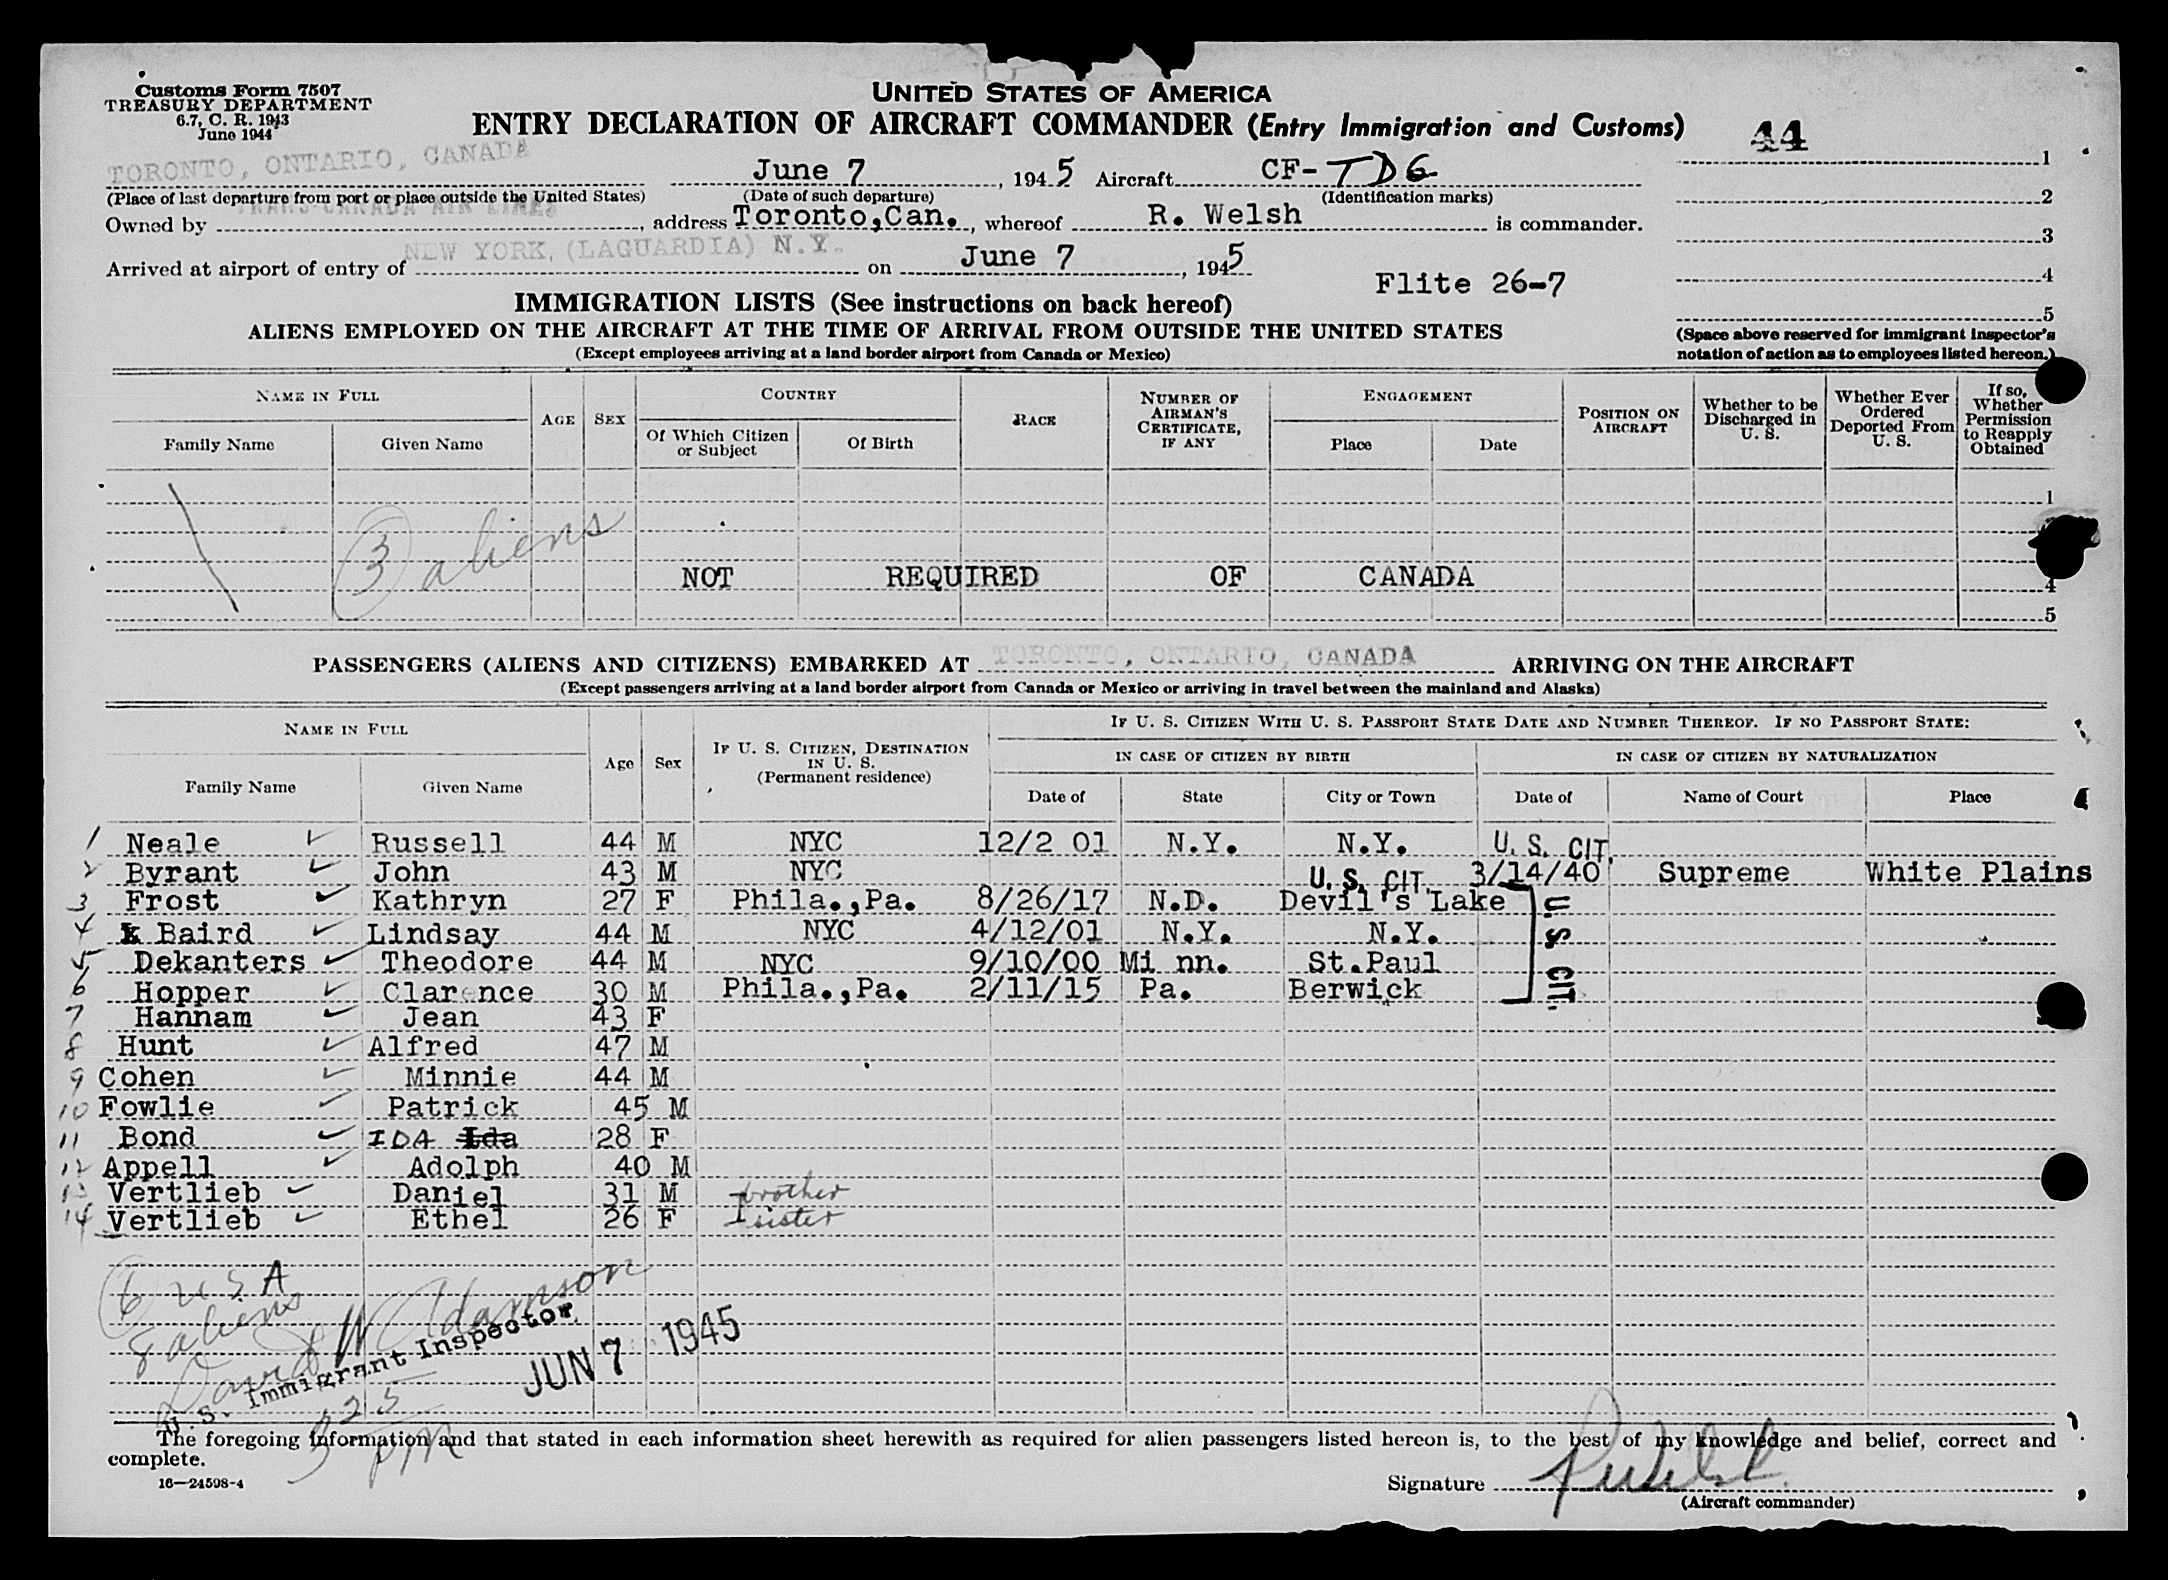 Customs Form 7507
TREASURY DEPARTMENT
6.7, C. R. 1943
June 1944
UNITED STATES OF AMERICA
ENTRY DECLARATION OF AIRCRAFT COMMANDER (Entry Immigration and Customs)
44
TORONTO, ONTARIO, CANADA June 7, 1945 Aircraft CF-TDG
(Place of last departure from port or place outside the United States) (Date of such departure) (Identification marks)
Owned by TRANS-CANADA AIR LINES, address Toronto,Can., whereof R. Welsh is commander.
Arrived at airport of entry of NEW YORK, (LAGUARDIA) N.Y. on June 7, 1945
Flite 26-7
1
2
3
4
5
(Space above reserved for immigrant inspector's
notation of action as to employees listed hereon.)
IMMIGRATION LISTS (See instructions on back hereof)
ALIENS EMPLOYED ON THE AIRCRAFT AT THE TIME OF ARRIVAL FROM OUTSIDE THE UNITED STATES
(Except employees arriving at a land border airport from Canada or Mexico)
NAME IN FULL
Family Name Given Name
AGE SEX
COUNTRY
Of Which Citizen or Subject Of Birth
RACE
NUMBER OF AIRMAN'S CERTIFICATE, IF ANY
ENGAGEMENT
Place Date
POSITION ON AIRCRAFT
Whether to be Discharged in U. S.
Whether Ever Ordered Deported From U. S.
If so, Whether Permission to Reapply Obtained
1
3 aliens
NOT REQUIRED OF CANADA
4
5
PASSENGERS (ALIENS AND CITIZENS) EMBARKED AT TORONTO, ONTARIO, CANADA ARRIVING ON THE AIRCRAFT
(Except passengers arriving at a land border airport from Canada or Mexico or arriving in travel between the mainland and Alaska)
NAME IN FULL
Family Name Given Name
Age Sex
IF U. S. CITIZEN, DESTINATION IN U. S. (Permanent residence)
IF U. S. CITIZEN WITH U. S. PASSPORT STATE DATE AND NUMBER THEREOF. IF NO PASSPORT STATE:
IN CASE OF CITIZEN BY BIRTH IN CASE OF CITIZEN BY NATURALIZATION
Date of State City or Town Date of Name of Court Place
1 Neale Russell 44 M NYC 12/2 01 N.Y. N.Y. U. S. CIT.
2 Byrant John 43 M NYC U. S. CIT. 3/14/40 Supreme White Plains
3 Frost Kathryn 27 F Phila.,Pa. 8/26/17 N.D. Devil's Lake
4 Baird Lindsay 44 M NYC 4/12/01 N.Y. N.Y.
5 Dekanters Theodore 44 M NYC 9/10/00 Mi nn. St.Paul
6 Hopper Clarence 30 M Phila.,Pa. 2/11/15 Pa. Berwick
U. S. CIT.
7 Hannam Jean 43 F
8 Hunt Alfred 47 M
9 Cohen Minnie 44 M
10 Fowlie Patrick 45 M
11 Bond IDA Ida 28 F
12 Appell Adolph 40 M
13 Vertlieb Daniel 31 M brother
14 Vertlieb Ethel 26 F sister
6 USA
8 aliens
David W Adamson
U.S. Immigrant Inspector.
JUN 7 1945
325
PM
The foregoing information and that stated in each information sheet herewith as required for alien passengers listed hereon is, to the best of my knowledge and belief, correct and
complete.
16—24598-4
Signature R Welsh
(Aircraft commander)